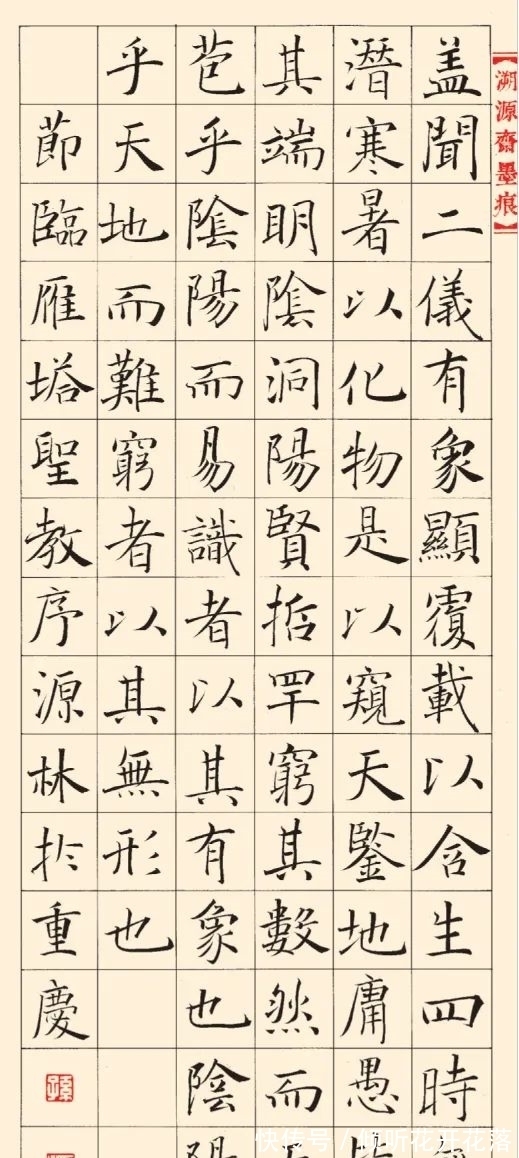 【溯源齋墨痕】
盖聞二儀有象顯覆載以含生四時
潛寒暑以化物是以窺天鑒地庸愚
其端明陰洞陽賢哲罕窮其數然而
苞乎陰陽而易識者以其有象也陰
乎天地而難窮者以其無形也
節臨雁塔聖教序源林於重慶
快传号 / 倾听花开花落